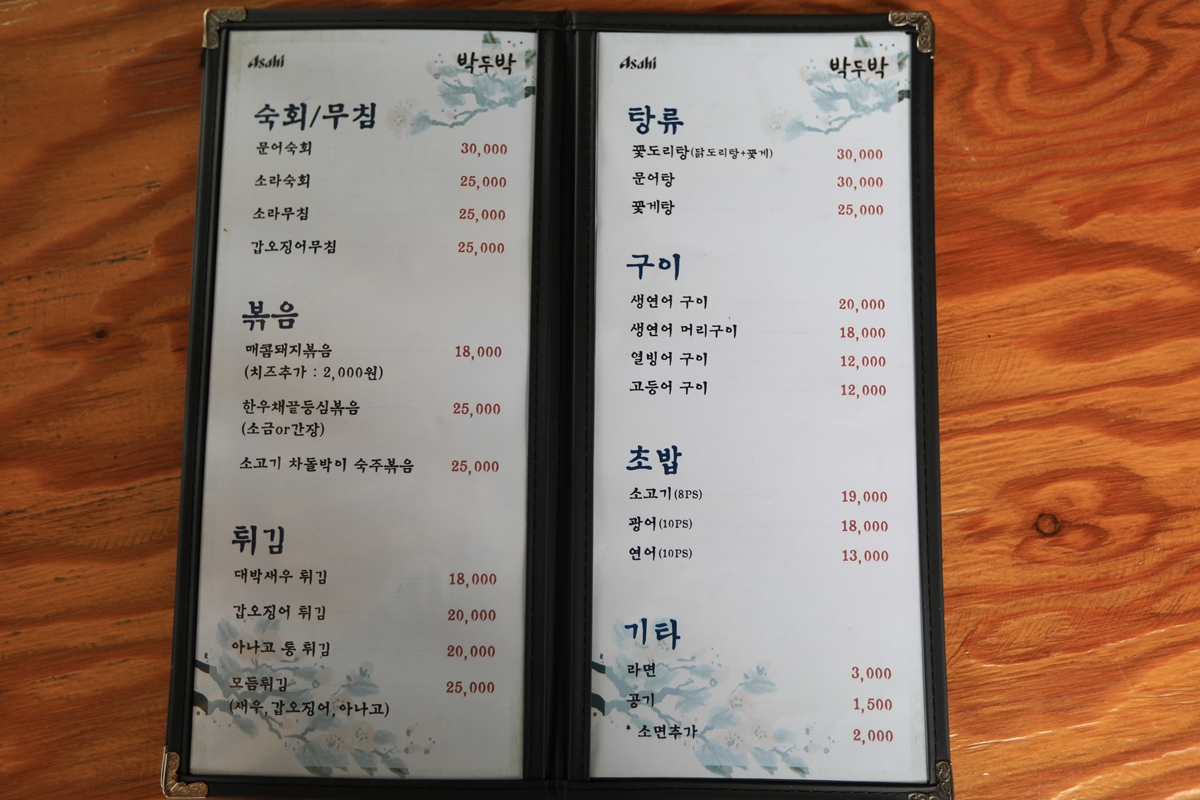 Asahi 박두박
숙회/무침
문어숙회 30,000
소라숙회 25,000
소라무침 25,000
갑오징어무침 25,000
볶음
매콤돼지볶음 18,000
(치즈추가 : 2,000원)
한우채끝등심볶음 25,000
(소금or간장)
소고기 차돌박이 숙주볶음 25,000
튀김
대박새우 튀김 18,000
갑오징어 튀김 20,000
아나고 통 튀김 20,000
모듬튀김 25,000
(새우,갑오징어,아나고)
Asahi 박두박
탕류
꽃도리탕(닭도리탕+꽃게) 30,000
문어탕 30,000
꽃게탕 25,000
구이
생연어 구이 20,000
생연어 머리구이 18,000
열빙어 구이 12,000
고등어 구이 12,000
초밥
소고기(8PS) 19,000
광어(10PS) 18,000
연어(10PS) 13,000
기타
라면 3,000
공기 1,500
* 소면추가 2,000